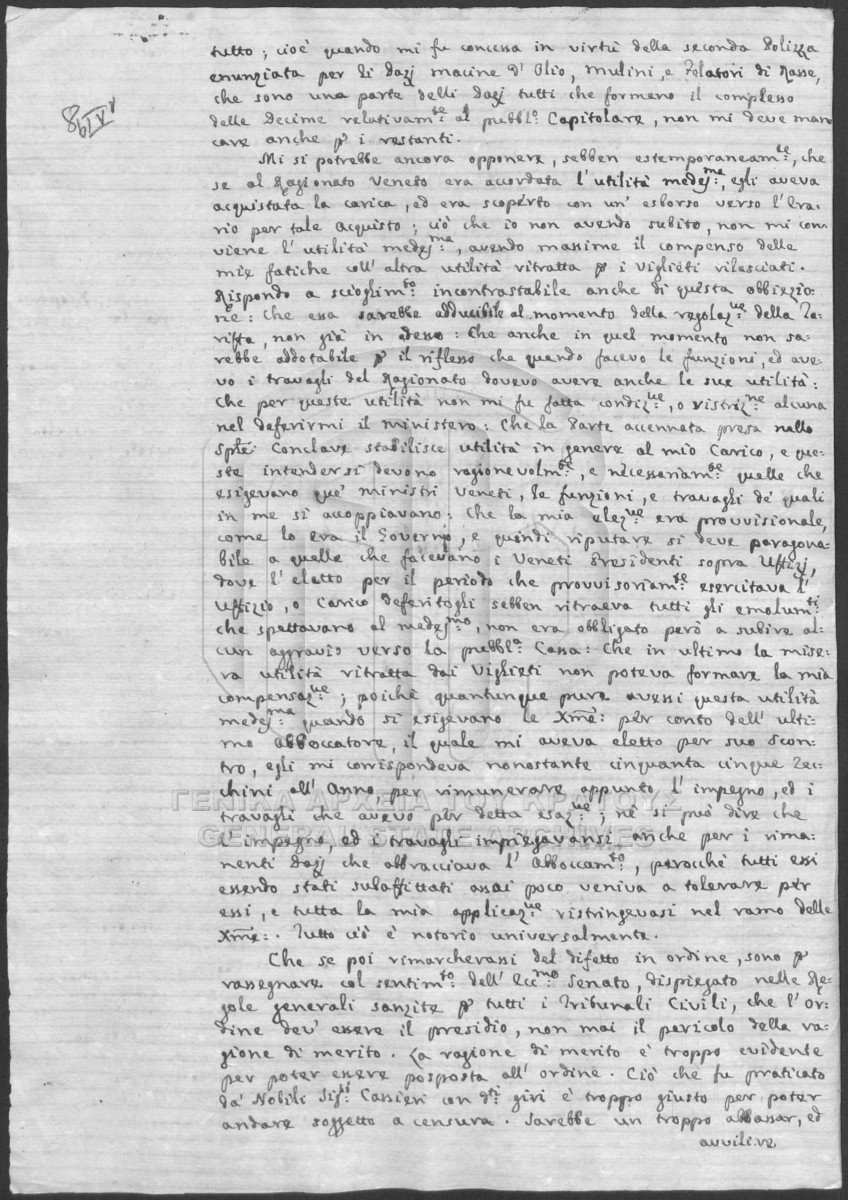 tutto; cioè quando mi fu concessa in virtù della seconda Polizza
enunziata per li Dazj macine d'Olio, Mulini, e Telatori di Rasse,
che sono una parte delli Dazj tutti che formano il complesso
delle Decime relativam:te al pubbl:o Capitolare, non mi deve man
care anche p i restanti.
Mi si potrebbe ancora opponere, sebben estemporaneam:te, che
se al Ragionato Veneto era accordata l'utilità medes:ma, egli aveva
acquistata la carica, ed era scoperto con un' esborso verso l'Era=
rio per tale acquisto; ciò che io non avendo subito, non mi con=
viene l'utilità medes:ma, avendo massime il compenso delle
mie fatiche coll' altra utilità ritratta p i Viglieti rilasciati.
Rispondo a scioglim:to incontrastabile anche di questa obbiezzio=
ne: Che essa sarebbe adducibile al momento della regolaz:ne della Ta=
riffa, non già in adesso: Che anche in quel momento non sa=
rebbe addotabile p il riflesso che quando facevo le funzioni, ed ave=
vo i travagli del Ragionato dovevo avere anche le sue utilità:
Che per queste utilità non mi fu fatta condiz:ne, o ristriz:ne alcuna
nel deferirmi il ministero: Che la Parte accennata presa nello
Conclave stabilisce utilità in genere al mio Carico, e que=
ste intendersi devono ragionevolm:te, e necessariam:te quelle che
esigevano que' ministri Veneti, le funzioni, e travagli de' quali
in me si accoppiavano: Che la mia elez:ne era provvisionale,
come lo era il Governo, e quindi riputare si deve paragona=
bile a quelle che facevano i Veneti Presidenti sopra Uffizj,
dove l'eletto per il periodo che provvisoriam:te esercitava l'
Uffizio, o Carico deferitogli sebben ritraeva tutti gli emolum:ti
che spettavano al medes:mo, non era obbligato però a subire al=
cun aggravio verso la pubbl:a Cassa: Che in ultimo la mise=
ra utilità ritratta dai Viglieti non poteva formare la mia
compensaz:ne; poichè quantunque pure avessi questa utilità
medes:ma quando si esigevano le Xme: per conto dell' ulti=
mo Abboccatore, il quale mi aveva eletto per suo Scon=
tro, egli mi corrispondeva nonostante cinquanta cinque Zec=
chini all' Anno, per rimunerare appunto l'impegno, ed i
travagli che avevo per detta esaz:ne; nè si può dire che
l'impegno, ed i travagli impiegavansi anche per i rima=
nenti Dazj che abbracciava l'Abboccam:to, perocchè tutti essi
essendo stati subaffittati assai poco veniva a tolerare per
essi, e tutta la mia applicaz:ne ristringevasi nel ramo delle
Xme:. Tutto ciò è notorio universalmente.
Che se poi rimarcherassi del difetto in ordine, sono p
rassegnare col sentim:to dell' Ecc:mo Senato, dispiegato nelle Re=
gole generali sanzite p tutti i Tribunali Civili, che l'or=
dine dev' essere il presidio, non mai il pericolo della ra=
gione di merito. La ragione di merito è troppo evidente
per poter essere posposta all' ordine. Ciò che fu praticato
da' Nobili Sig:ri Cassieri con d:ti giri è troppo giusto per poter
andare soggetto a censura. Sarebbe un troppo abbassar, ed
avvilire
ΓΕΝΙΚΑ ΑΡΧΕΙΑ ΤΟΥ ΚΡΑΤΟΥΣ
GENERAL STATE ARCHIVES